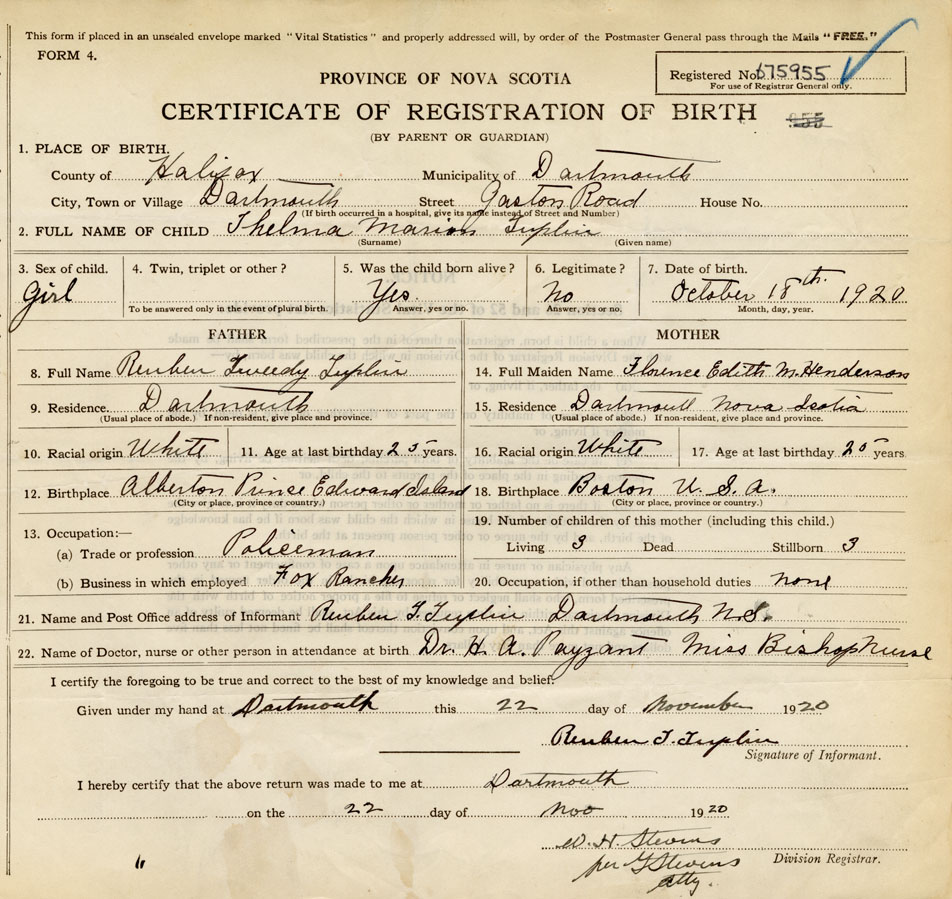 This form if placed in an unsealed envelope marked "Vital Statistics" and properly addressed will, by order of the Postmaster General pass through the Mails "FREE."
FORM 4.
Registered No. 675955
For use of Registrar General only.
PROVINCE OF NOVA SCOTIA
CERTIFICATE OF REGISTRATION OF BIRTH
955
(BY PARENT OR GUARDIAN)
1. PLACE OF BIRTH.
County of Halifax Municipality of Dartmouth
City, Town or Village Dartmouth Street Gaston Road House No.
(If birth occurred in a hospital, give its name instead of Street and Number)
2. FULL NAME OF CHILD Thelma Marion Tuplin
(Surname) (Given name)
3. Sex of child. 4. Twin, triplet or other? 5. Was the child born alive? 6. Legitimate? 7. Date of birth.
Girl Yes. No October 18th. 1920
To be answered only in the event of plural birth. Answer, yes or no. Answer, yes or no. Month, day, year.
FATHER MOTHER
8. Full Name Reuben Tweedy Tuplin 14. Full Maiden Name Florence Edith M. Henderson
9. Residence. Dartmouth 15. Residence Dartmouth Nova Scotia
(Usual place of abode.) If non-resident, give place and province. (Usual place of abode.) If non-resident, give place and province.
10. Racial origin White 11. Age at last birthday 25 years. 16. Racial origin White 17. Age at last birthday 25 years
12. Birthplace Alberton Prince Edward Island 18. Birthplace Boston U. S. A.
(City or place, province or country.) (City or place, province or country.)
13. Occupation:— 19. Number of children of this mother (including this child.)
(a) Trade or profession Policeman Living 3 Dead Stillborn 3
(b) Business in which employed Fox Rancher 20. Occupation, if other than household duties none
21. Name and Post Office address of Informant Reuben T. Tuplin Dartmouth N.S.
22. Name of Doctor, nurse or other person in attendance at birth Dr. H. A. Payzant Miss Bishop Nurse
I certify the foregoing to be true and correct to the best of my knowledge and belief.
Given under my hand at Dartmouth this 22 day of November 1920
Reuben T. Tuplin
Signature of Informant.
I hereby certify that the above return was made to me at Dartmouth
on the 22 day of Nov 1920
W. H. Stevens
per G Stevens
Division Registrar.
Atty.